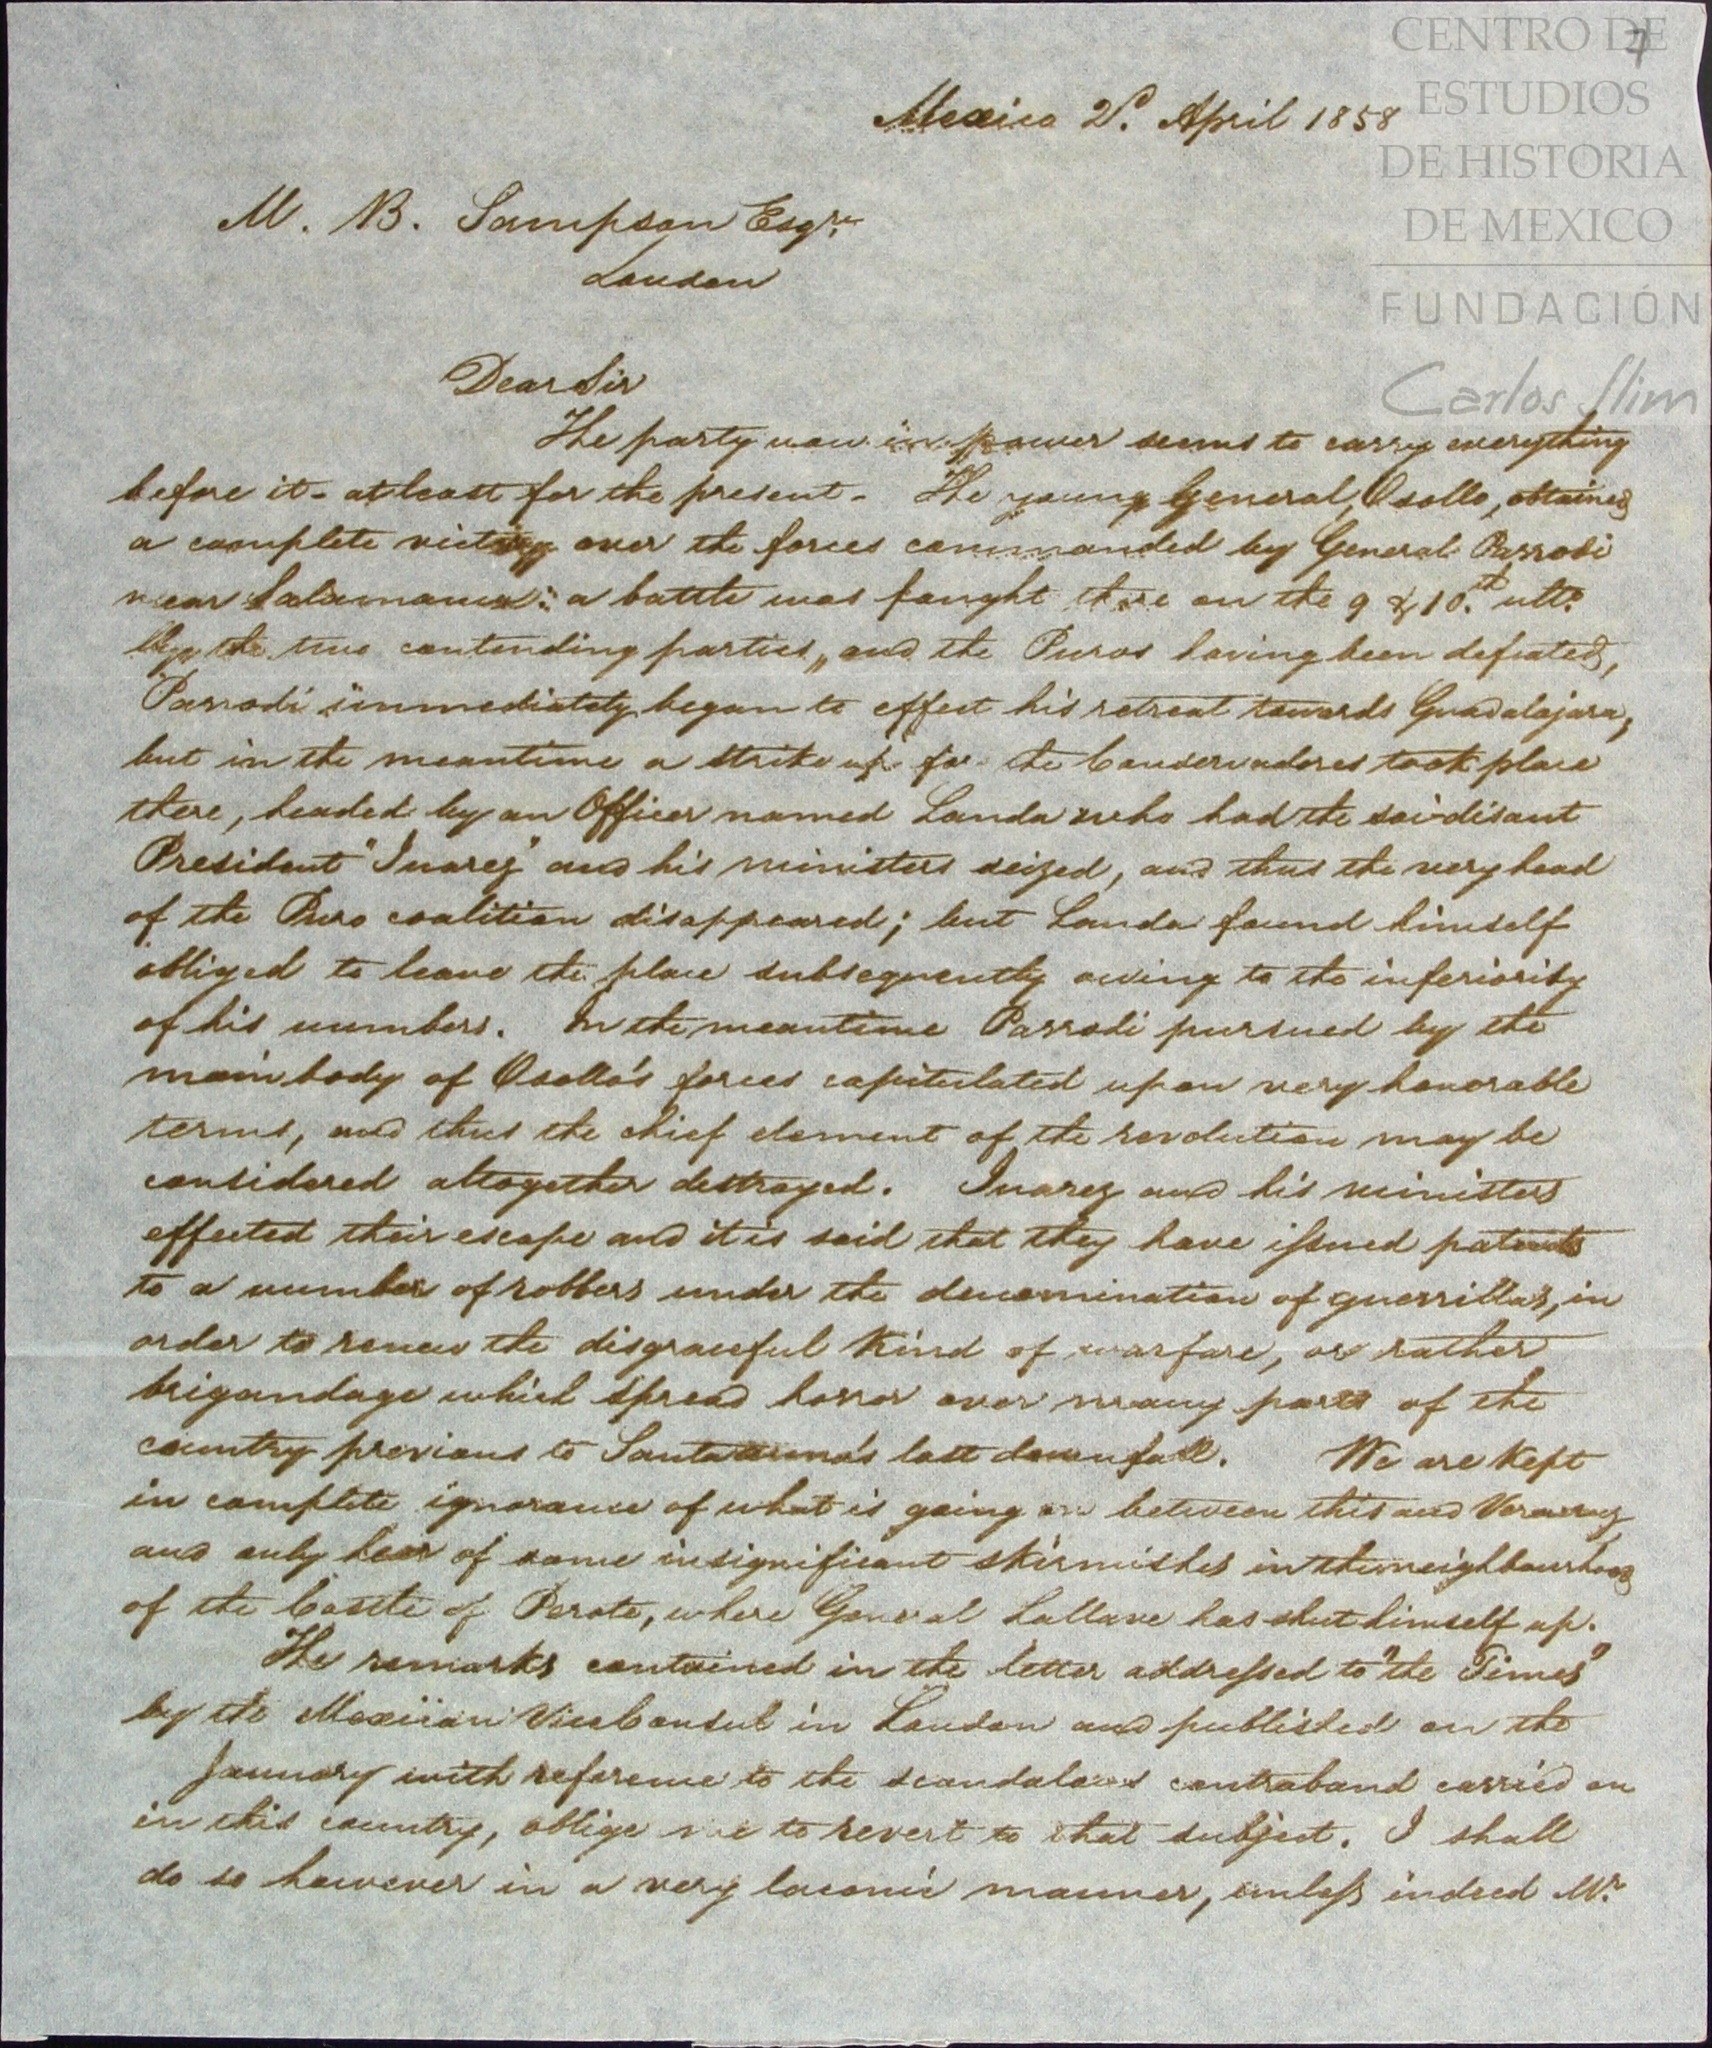 7
CENTRO DE
ESTUDIOS
DE HISTORIA
DE MEXICO
FUNDACIÓN
Carlos Slim
Mexico 2d. April 1858
M. B. Sampson Esqre.
London
Dear Sir
The party now in power seems to carry everything
before it - at least for the present - The young General, Osollo, obtained
a complete victory over the forces commanded by General Parrodi
near Salamanca: a battle was fought there on the 9 & 10.th ulto.
by the two contending parties, and the Puros having been defeated,
Parrodi immediately began to effect his retreat towards Guadalajara,
but in the meantime a strike up for the Conservadores took place
there, headed by an Officer named Landa who had the soi-disant
President "Juarez" and his ministers seized, and thus the very head
of the Puro coalition disappeared; but Landa found himself
obliged to leave the place subsequently owing to the inferiority
of his numbers. In the meantime Parrodi pursued by the
main body of Osollo's forces capitulated upon very honorable
terms, and thus the chief element of the revolution may be
considered altogether destroyed. Juarez and his ministers
effected their escape and it is said that they have issued patents
to a number of robbers under the denomination of guerrillas, in
order to renew the disgraceful kind of warfare, or rather
brigandage which spread horror over many parts of the
country previous to Santa anna's last downfall. We are kept
in complete ignorance of what is going on between this and Veracruz
and only hear of some insignificant skirmishes in the neighbourhood
of the Castle of Perote, where General Lallave has shut himself up.
The remarks contained in the letter addressed to "the Times"
by the Mexican Vice Consul in London and published on the
January with reference to the scandalous contraband carried on
in this country, oblige me to revert to that subject. I shall
do so however in a very laconic manner, unless indeed Mr.